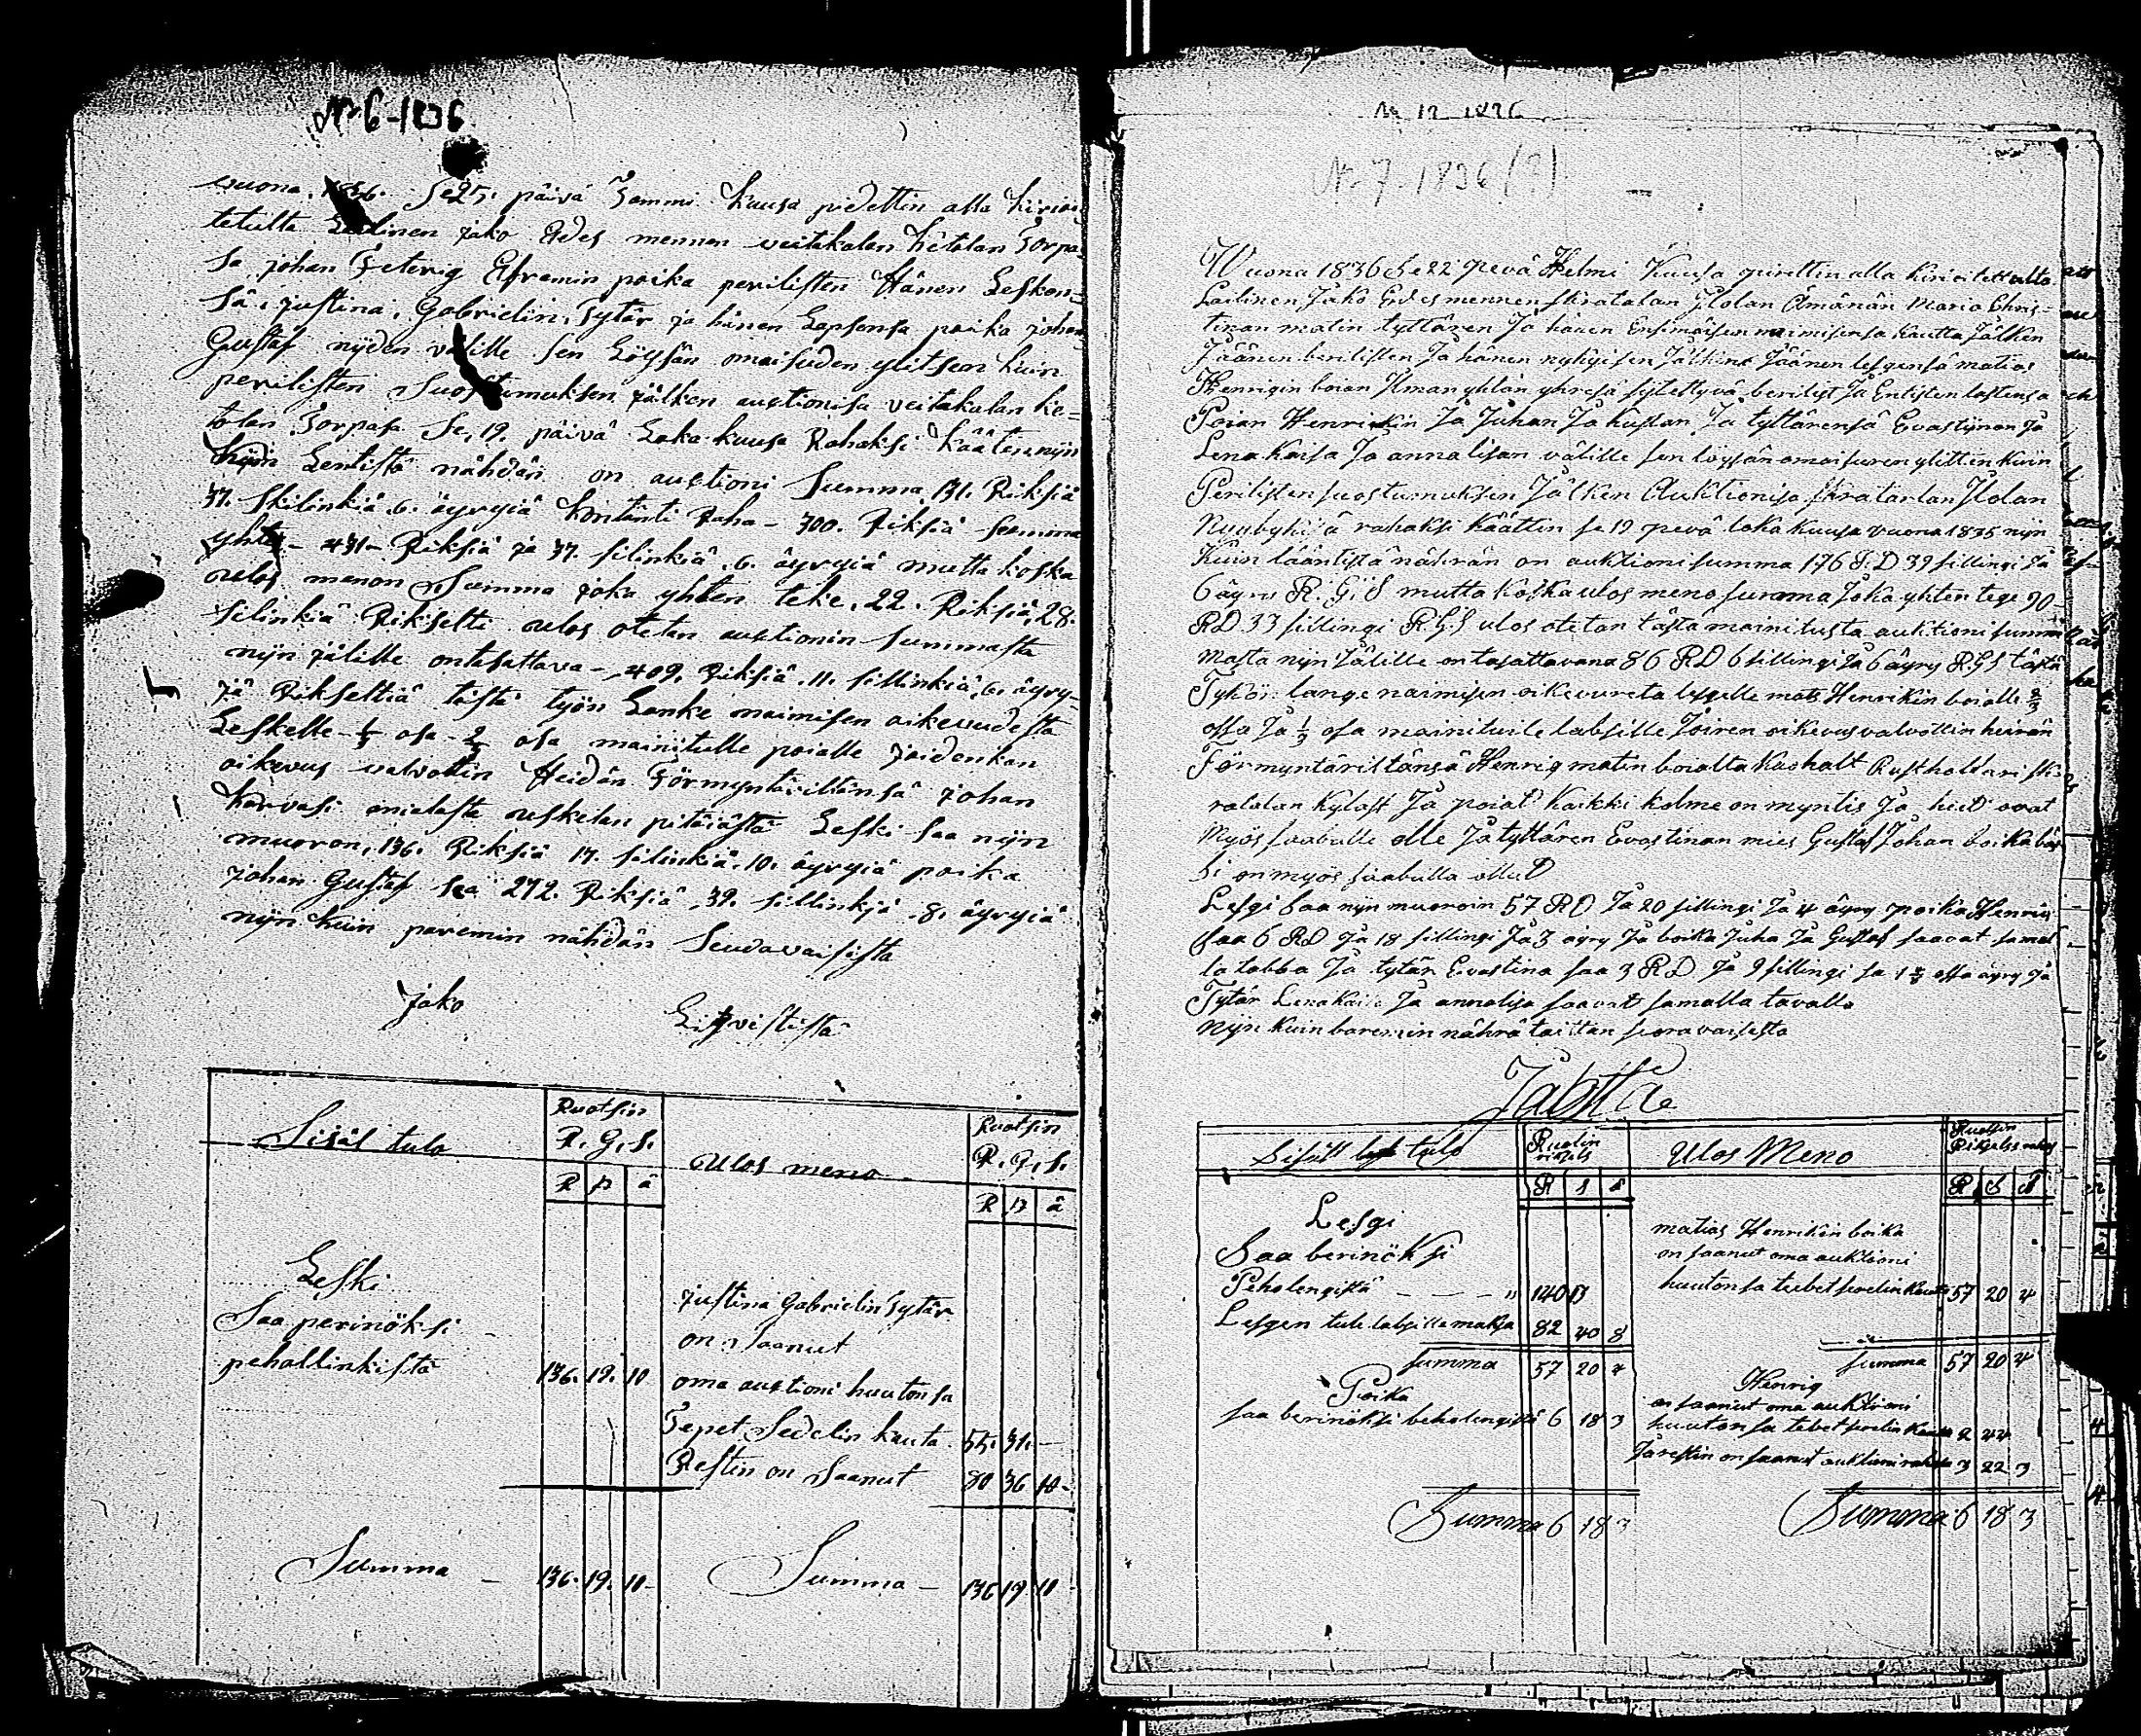 Nr 6-1836
vuona. 1836. Se 25. päivä Tammi kuusa pidettin alla kirioi-
tetulta Laelinen jako Edes mennen veitakalan kitolan Torpa-
sa, johan Feterig Eframin poika perilisten Hänen Lesken-
sä, justina, Gabrielin, Tytär ja hänen Lapsensa poika johan
Gustaf nijden välille sen Löysän omaisuden ylitsen kuin
perilisten Suostumuksen jälken auctionisa veitakalan ki-
tolan Torpasa Se, 19. päivä Loka kuusa Rahaksi käätin, nijn
kuin Lentistä nähdän on auctioni Summa, 131. Riksiä
37. skilinkiä .6. äyryiä kontanti Raha - 300. Riksiä summa
yhte - 431 - Riksiä ja 37. silinkiä .6. äyryiä mutta koska
ulos menon Summa joka yhten teke, 22. Riksiä, 28.
silinkiä Rikseltti ulos otetan auctionin summasta
nijn jälille ontasattava - 409. Riksiä .11. sillinkiä, 6. äyry-
jä Rikseltiä tästä työn Lanke naimisen oikeuudesta
Leskelle - 1/3 osa - 2/3 osa mainitulle poialle joidenkan
oikeuus valvottin Heidän Förmyntäriltänsä johan
karvasi anialasta uskelan pitäiästä Leski saa nijn
muoron, 136. Riksiä 19. silinkiä. 10. äyryiä poika
johan Gustaf saa 272. Riksiä .39. sillinkjä .8. äyryiä
nijn kuin paremin nähdän Seuravaisista
jako Litvististä
Sisäl tulo
Ruotsin
R. G. S.
R ß ä
ulos meno
Ruotsin
R. G. S.
R ß ä
Leski
Saa perinöksi
pehallinkistä 136. 19. 10
justina Gabrielin Tytär
on Saanut
oma auctioni huutonsa
Tepet Sedelin kauta 55. 31. -
Restin on Saanut 80 36 10 -
Summa - 136. 19. 10 -
Summa - 136 19 10 -
Nr 12 1836
Nr 7-1836 (?)
Wuona 1836 Se 22 pevä Helmi kuusa pirettin alla kirioitettulta
Lailinen Jako Edes mennen skratalan Jlolan Ämänän Maria Chris-
tinan matin tyttären Ja hänen Ensimäisen naimisensa kautta Jälken
Jäänen berilisten Ja hänen nykyisen Jälkens Jäänen lesgensä matias
Henrigin boian Jlman yhtän yhresä syletttyvä berilist Ja Entisten lastensa
Poian Henrikin Ja Juhan Ja kustan Ja tyttärensä Evastijnan Ja
Lena Kaisa Ja annalisan välille sen löysän omaisuren ylitten kuin
Perilisten suostumuksen Jälken Auktionisa skratarlan Jlolan
Nuybykylä rahaksi käättin se 19 pevä loka kuusa vuona 1835 nijn
Kuin lääntistä nährän on auktioni summa 176 R.D 39 sillingi Ja
6 äyry R.G.S mutta koska ulos meno summa Joka yhten tege 90
RD 33 sillingi RGS ulos otetan tästä mainitusta auktioni summ
Masta nijn Jälille on tasattavana 86 RD 6 sillingi Ja 6 äyry RGS tästä
Tykön lange naimisen oikeuureta lesgelle mats Henrikin boialle 2/3
ossa Ja 1/3 osa mainituile labsille Joiren oikeus valvottin heirän
Förmyntäriltänsä Henrig matin boialta kaohalt Rusthollari sk
ratalan kyläst Ja poiat kaikki kolme on myntis Ja hud ovat
Myös saabulle olle Ja tyttären Evastinan mies Gustaf Johan boika
si on myös saabulla ollud
Lesgi saa nijn muoroin 57 RD Ja 20 sillingi Ja 4 äyry poika Henrig
saa 6 RD Ja 18 sillingi Ja 3 äyry Ja boika Juha Ja Gustaf saavat samal
la tabba Ja tytär Evastina saa 3 RD Ja 9 sillingi Ja 1 1/2 ossa äyry Ja
Tytär Lena Kaisa Ja annalisa saavat samalla tavalla
Nijn kuin baremin nährä taittan seuravaisesta
Jabitta
Sisäll tulo
Ruotin
rixels
R s ä
Ulos Meno
Ruotsin
Rikseles rahas
R S ä
Lesgi
Saa berinöksi
Peholengistä - - - " 140 13
Lesgen tule labsille maksa 82 40 8
summa 57 20 4
matias Henrikin boika
on saanut oma auktioni
huutonsa tebet sedelin kautta 57 20 4
summa 57 20 4
Poika
saa berinöksi beholengistä 6 18 3
Henrig
on saanut oma auktioni
huutonsa tebet sedelin kautta 2 44
Ja restin on saanut auktioni rahasa 3 22 3
Summa 6 18 3
Summa 6 18 3